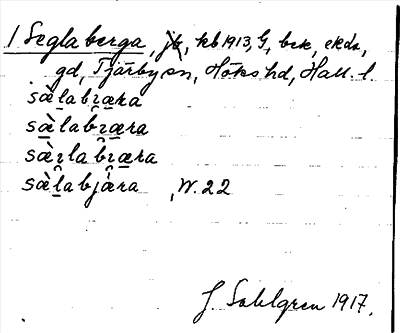 1 Seglaberga, jb, kb 1913, G, bek, ekdr,
gd, Tjärby sn, Höks hd, Hall. l.
sæ̀l̯abı̯æra
sæ̀labı̯æra
sæ̀ılabı̯æra
sæ̀l̯abjæ̂ra , W. 22
J. Sahlgren 1917.